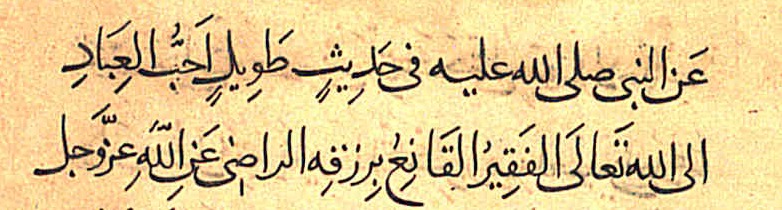 عَن النبى صلى الله عليه فى حَدِيثٍ طَوِيلٍ اَحَبُّ العِبَادِ
الى الله تَعَالَى الفَقِيرُ القَانِعُ بِرزقِه الراضِى عَنِ اللَّهِ عزَّوَجل